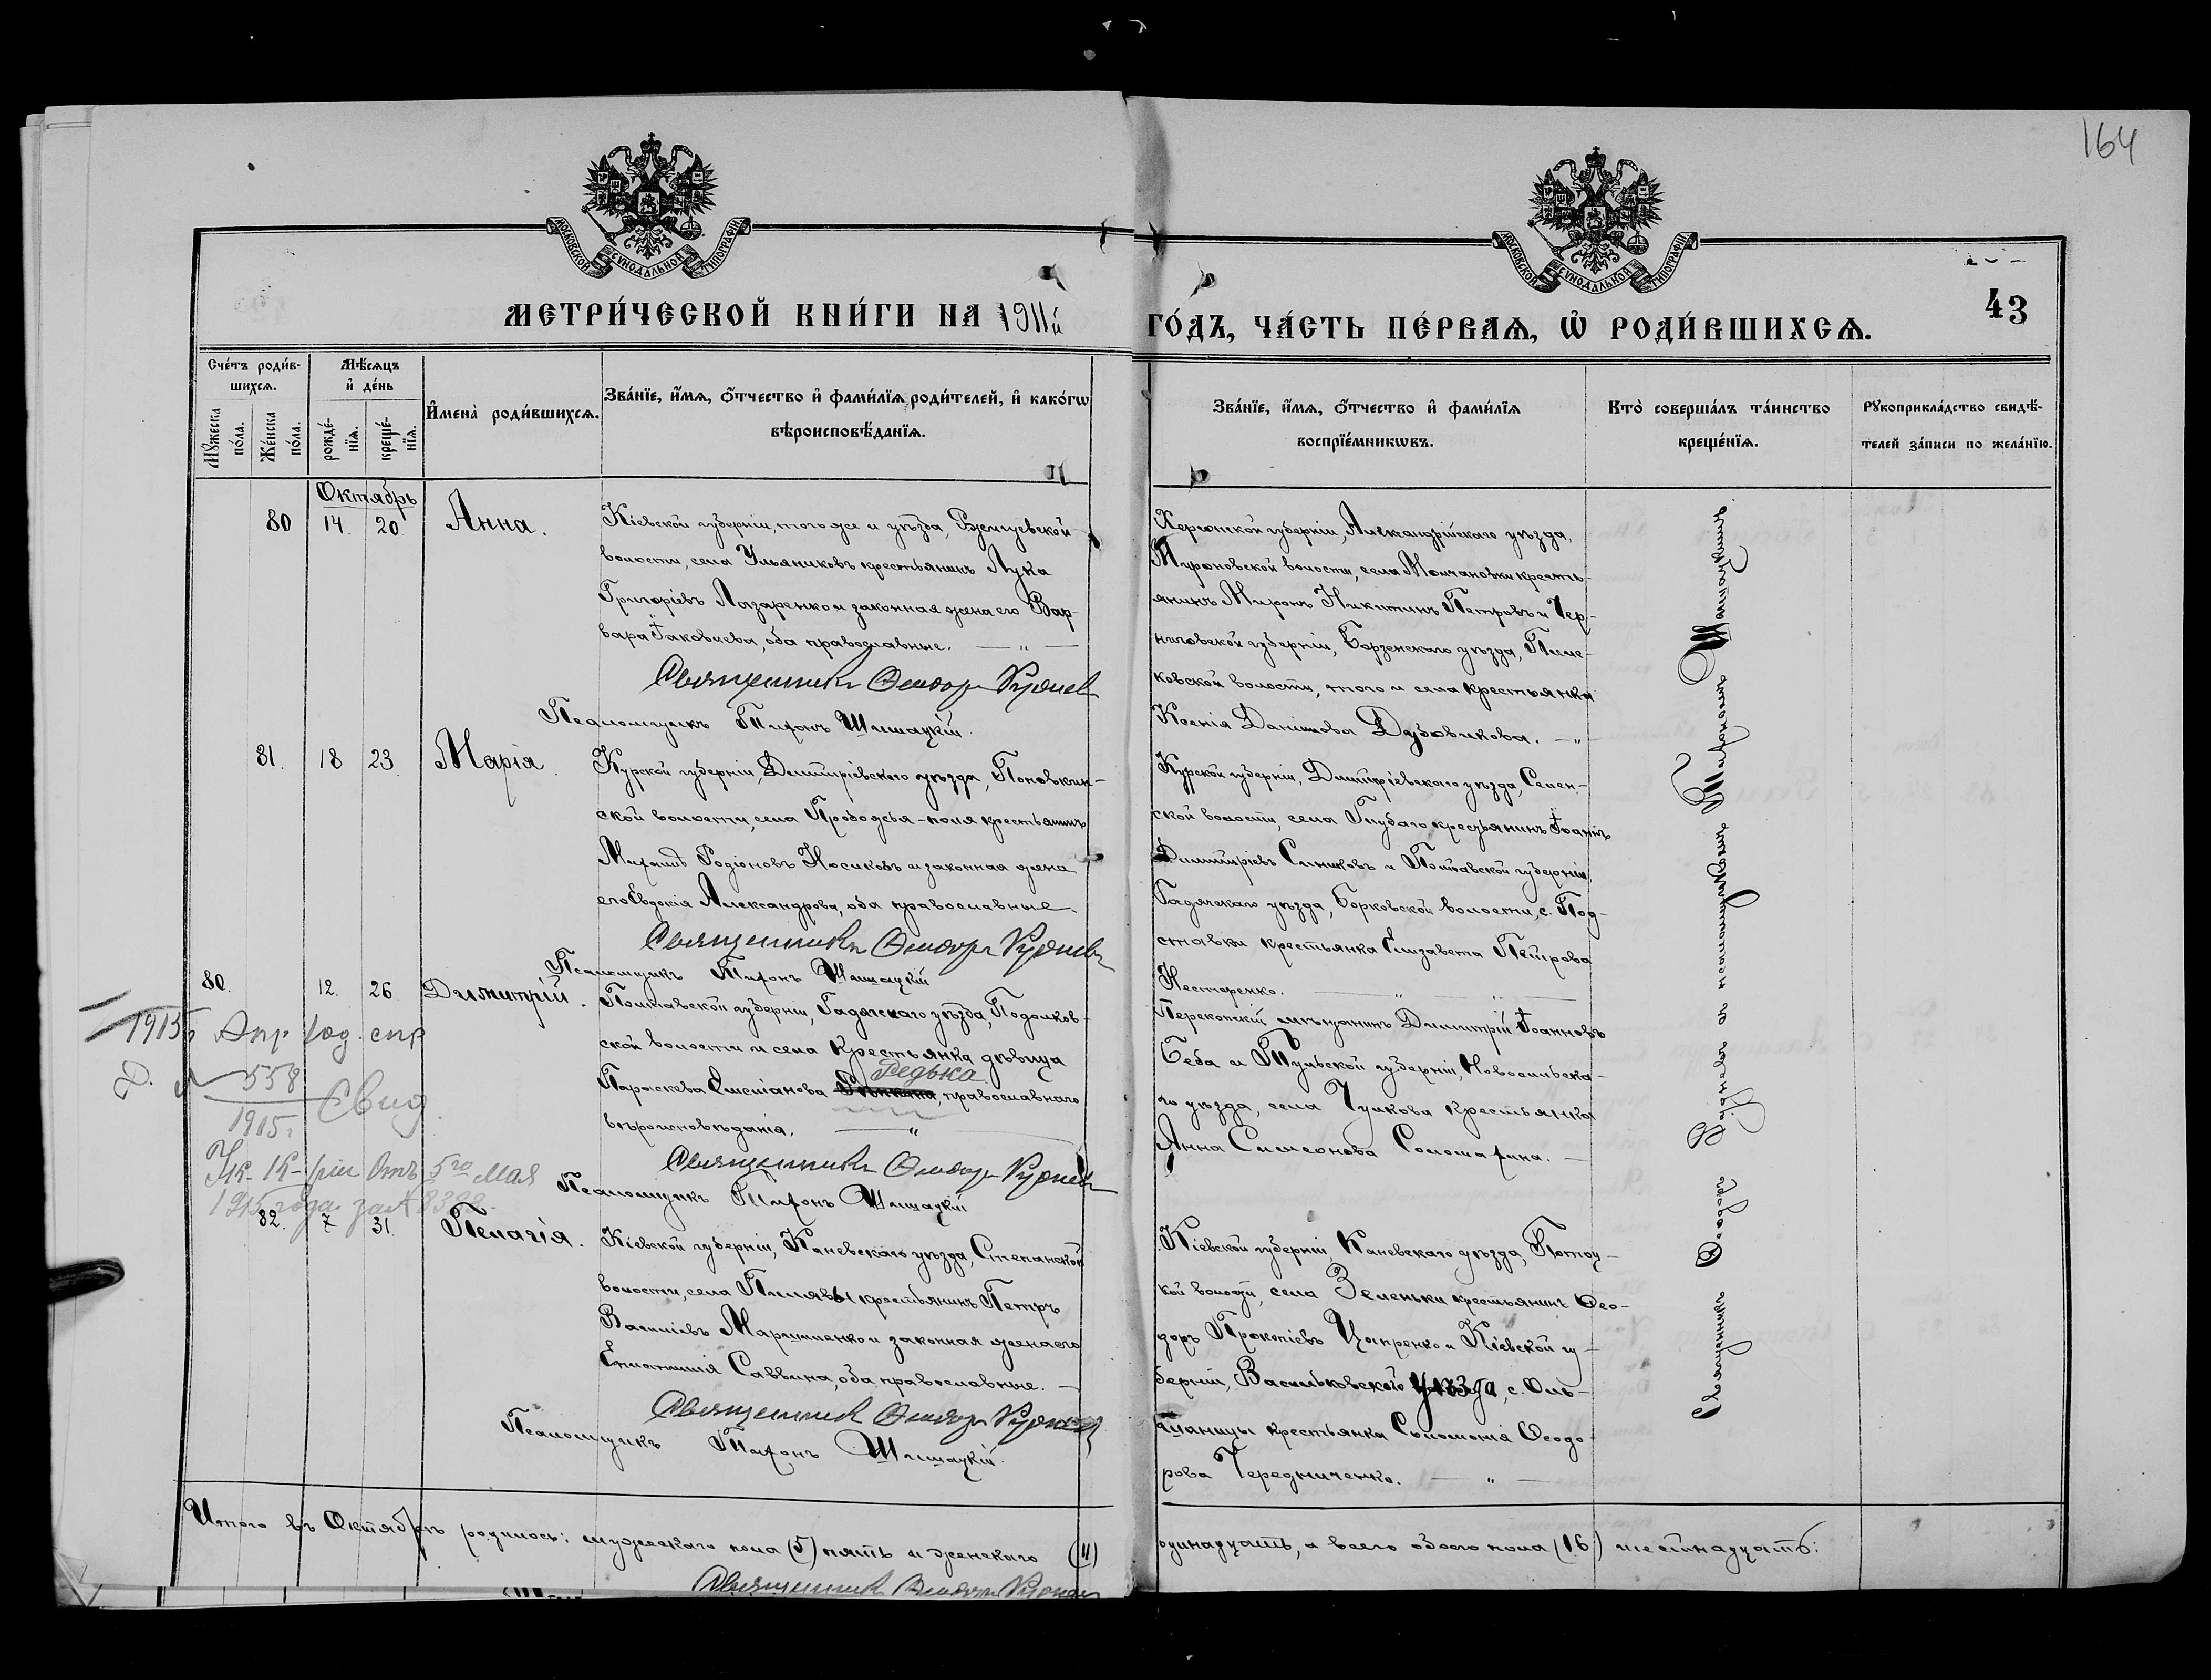 164
МОСКОВСКОЙ СѴНОДАЛЬНОЙ ТИПОГРАФІИ
МОСКОВСКОЙ СѴНОДАЛЬНОЙ ТИПОГРАФІИ
МЕТРИ́ЧЕСКОЙ КНИ́ГИ НА 1911й
ГО́ДЪ, ЧА́СТЬ ПЕ́РВАѦ, Ѡ҆ РОДИ́ВШИХСѦ.
43
Сче́тъ роди́в-
шихсѧ.
Мꙋ́жеска по́ла.
Же́нска по́ла.
Мѣ́сѧцъ
и҆ де́нь
рожде́-
нїѧ.
креще́-
нїѧ.
И҆мена̀ роди́вшихсѧ.
Зва́нїе, и҆́мѧ, ѻ҆́тчество и҆ фами́лїѧ роди́телей, и҆ како́гѡ
вѣроисповѣ́данїѧ.
Зва́нїе, и҆́мѧ, ѻ҆́тчество и҆ фами́лїѧ
воспрїе́мникѡвъ.
Кто̀ соверша́лъ та́инство
креще́нїѧ.
Рꙋкоприкла́дство свидѣ́-
телей за́писи по жела́нїю.
Октябрь
80 14. 20 Анна.
Кіевской губерніи, того же и уѣзда, Ржищевской
волости, села Ульяниковъ крестьянинъ Лука
Григоріевъ Лазаренко и законная жена его Вар-
вара Іаковлева, оба православные. — „ —
Священникъ Ѳеодоръ Рудневъ
Псаломщикъ Тихонъ Шишацкій.
Херсонской губерніи, Александрійскаго уѣзда,
волости, села Молчановки кресть-
янинъ Миронъ Никитинъ Петровъ и Чер-
ниговской губерніи, Борзенскаго уѣзда,
ковской волости, того и села крестьянка
Ксенія Даніилова Дубовикова. — „
81. 18 23. Марія.
Курской губерніи, Димитріевскаго уѣзда,
ской волости, села крестьянинъ
Михаилъ Родіоновъ Носиковъ и законная жена
его Евдокія Александрова, оба православные.
Священникъ Ѳеодоръ Рудневъ
Псаломщикъ Тихонъ Шишацкій
Курской губерніи, Димитріевскаго уѣзда,
ской волости, села крестьянинъ Іоаннъ
Димитріевъ и Полтавской губерніи,
Гадячскаго уѣзда, Борковской волости, с. Под-
ставки крестьянка Елизавета Петрова
Нестеренко. — „ — „ —
80. 12. 26 Димитрій.
Полтавской губерніи, Гадячскаго уѣзда, Подолков-
ской волости и села крестьянка дѣвица
Редька
Параскева Стефанова православнаго
вѣроисповѣданія. — „ —
Священникъ Ѳеодоръ Рудневъ
Псаломщикъ Тихонъ Шишацкій
Перекопскій мѣщанинъ Димитрій Іоанновъ
Беба и Тульской губерніи, Новосильска-
го уѣзда, села Чулкова крестьянка
Анна Симеонова —
1915 г.
558
1915 г.
Свид.
Отъ 5го мая
1915 года за №
82. 7 31. Пелагія.
Кіевской губерніи, Каневскаго уѣзда, Степанской
волости, села Пилявы крестьянинъ Петръ
Василіевъ и законная жена его
Саввина, оба православные. —
Священникъ Ѳеодоръ Рудневъ
Псаломщикъ Тихонъ Шишацкій.
Кіевской губерніи, Каневскаго уѣзда, Потоц-
кой волости, села Зеленьки крестьянинъ Ѳео-
доръ Прокопіевъ Ципренко и Кіевской гу-
берніи, Васильковскаго уѣзда, с. Оль-
шаницы крестьянка Соломонія Ѳеодо-
рова Чередниченко. — „ —
Священникъ Ѳеодоръ Рудневъ и псаломщикъ Тихонъ Шишацкій
Итого въ Октябрѣ родилось: мужескаго пола (5) пять и женскаго (11)
одинадцать, а всего обоего пола (16) шестнадцать:
Священникъ Ѳеодоръ Рудневъ